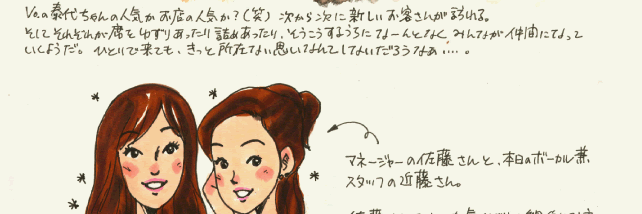 Vo.の泰代ちゃんの人気かお店の人気か？(笑) 次から次に新しいお客さんが訪れる。
そしてそれぞれが席をゆずりあったり詰めあったり、そうこうするうちになーんとなく、みんなが仲間になって
いくようだ。ひとりで来ても、きっと所在ない思いなんてしないだろうなぁ…。
マネージャーの佐藤さんと、本日のボーカル兼
スタッフの近藤さん。